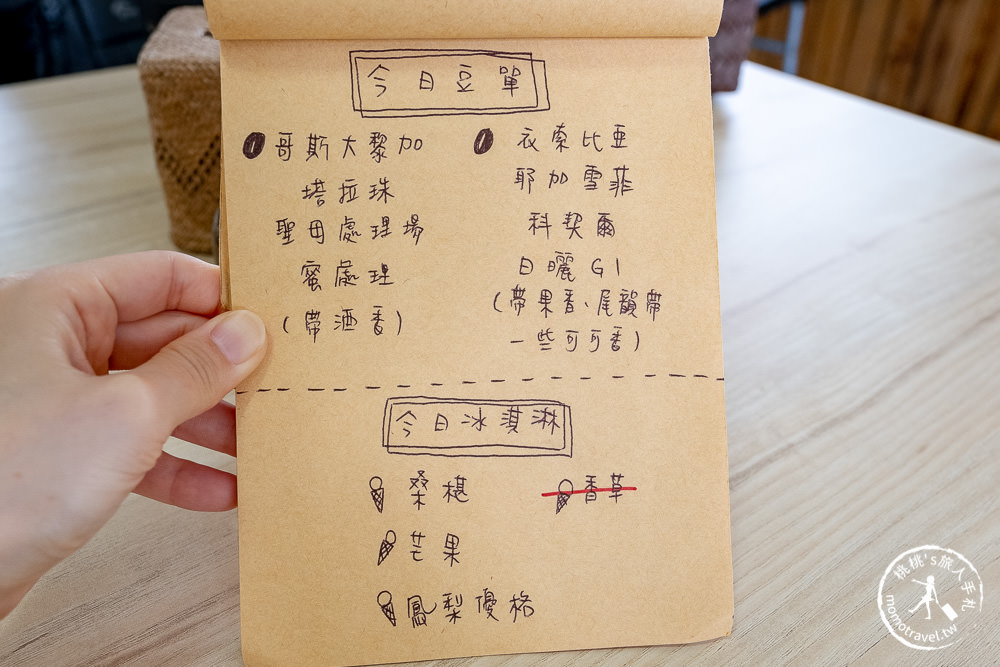 今日豆單
哥斯大黎加
塔拉珠
聖母處理場
蜜處理
(帶酒香)
衣索比亞
耶加雪菲
科契爾
日曬 G1
(帶果香、尾韻帶
一些可可香)
今日冰淇淋
桑椹
香草
芒果
鳳梨優格
桃桃's旅人手札
momotravel.tw